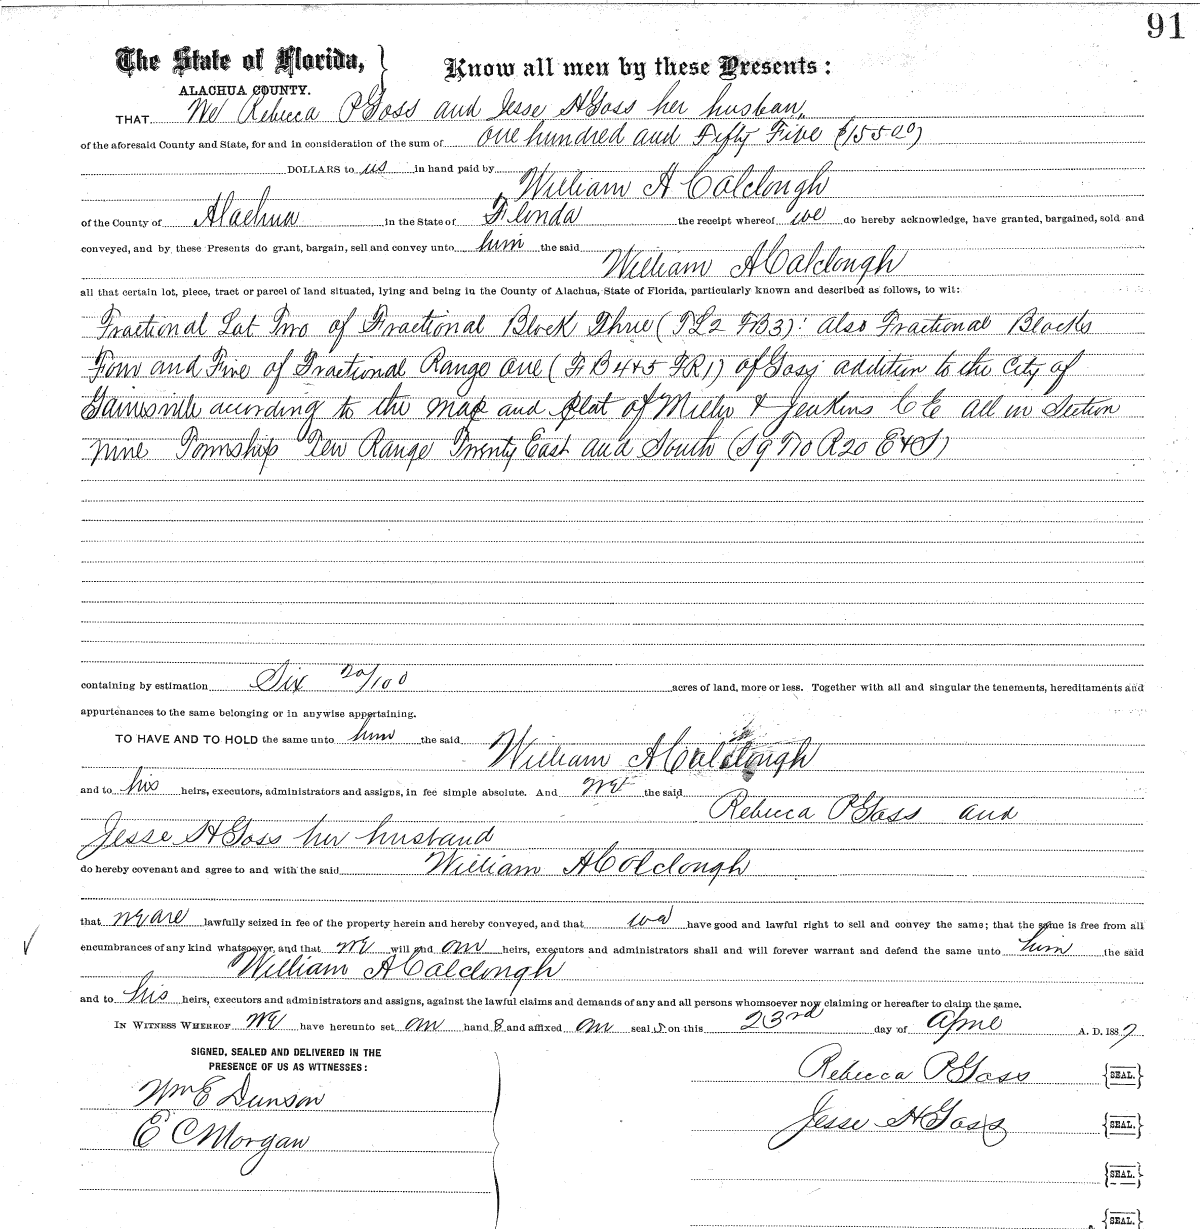 91
The State of Florida, } Know all men by these Presents:
ALACHUA COUNTY.
THAT We Rebecca P Goss and Jesse H Goss her husban
of the aforesaid County and State, for and in consideration of the sum of one hundred and Fifty Five ($155 00)
DOLLARS to us in hand paid by
William A Colclough
of the County of Alachua in the State of Florida the receipt whereof we do hereby acknowledge, have granted, bargained, sold and
conveyed, and by these Presents do grant, bargain, sell and convey unto him the said
William A Colclough
all that certain lot, piece, tract or parcel of land situated, lying and being in the County of Alachua, State of Florida, particularly known and described as follows, to wit:
Fractional Lot Two of Fractional Block Three (FL2 FB3): also Fractional Blocks
Four and Five of Fractional Range one (FB 4+5 FR1) of Goss addition to the City of
Gainesville according to the map and plat of Miller & Jenkins C E all in Section
nine Township Ten Range Twenty East and South (S9 T10 R20 E+S)
containing by estimation Six 20/100 acres of land, more or less. Together with all and singular the tenements, hereditaments and
appurtenances to the same belonging or in anywise appertaining.
TO HAVE AND TO HOLD the same unto him the said
William A Colclough
and to his heirs, executors, administrators and assigns, in fee simple absolute. And We the said
Rebecca P Goss and
Jesse H Goss her husband
do hereby covenant and agree to and with the said William A Colclough
that we are lawfully seized in fee of the property herein and hereby conveyed, and that we have good and lawful right to sell and convey the same; that the same is free from all
encumbrances of any kind whatsoever, and that we will and our heirs, executors and administrators shall and will forever warrant and defend the same unto him the said
William A Colclough
and to his heirs, executors and administrators and assigns, against the lawful claims and demands of any and all persons whomsoever now claiming or hereafter to claim the same.
IN WITNESS WHEREOF We have hereunto set our hand s and affixed our seal s on this 23rd day of April A. D. 1887
SIGNED, SEALED AND DELIVERED IN THE
PRESENCE OF US AS WITNESSES:
Wm E Dunson
E C Morgan
Rebecca P Goss {SEAL.}
Jesse H Goss {SEAL.}
{SEAL.}
{SEAL.}